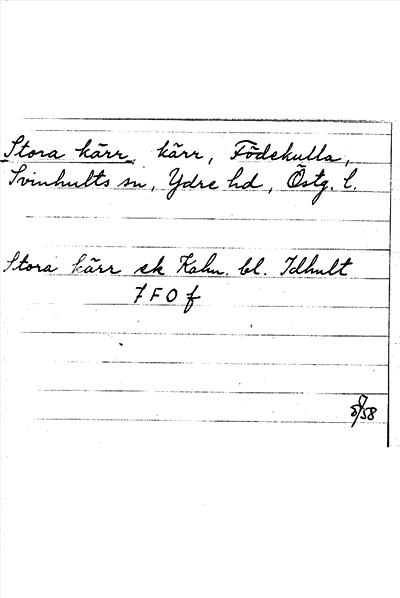 Stora kärr, kärr, Födekulla,
Svinhults sn, Ydre hd, Östg. l.
Stora kärr ek Kahn. bl. Idhult
7 F O f
5/58